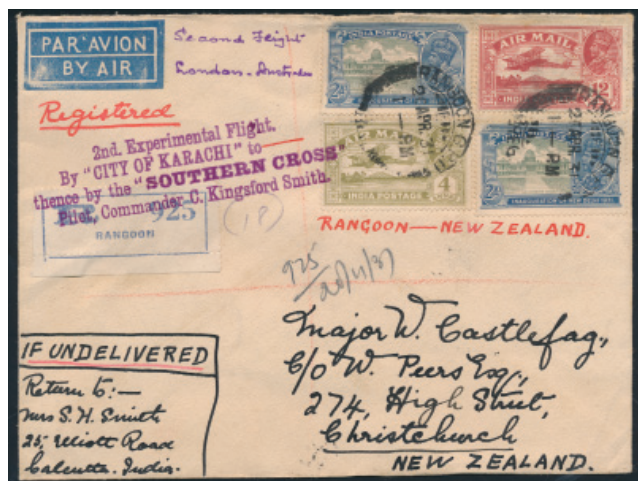 PAR AVION
BY AIR
Second Flight
London-Australia
Registered
2nd. Experimental Flight.
By "CITY OF KARACHI" to
thence by the "SOUTHERN CROSS"
Pilot, Commander C. Kingsford Smith.
925
RANGOON
(18)
2As
AIR MAIL
2As
INDIA
AIR MAIL
4As
INDIA POSTAGE
2As
INAUGURATION OF NEW DELHI 1931
RANGOON G.P.O.
APR. 31
1 - PM
RANGOON
APR. 31
1 - PM
REG
RANGOON—NEW ZEALAND.
925
Major W. Castlefag,
C/o W. Peers Esq.,
274, High Street,
Christchurch
NEW ZEALAND.
IF UNDELIVERED
Return to:—
Mrs S. H. Smith
25, Elliott Road
Calcutta. India.